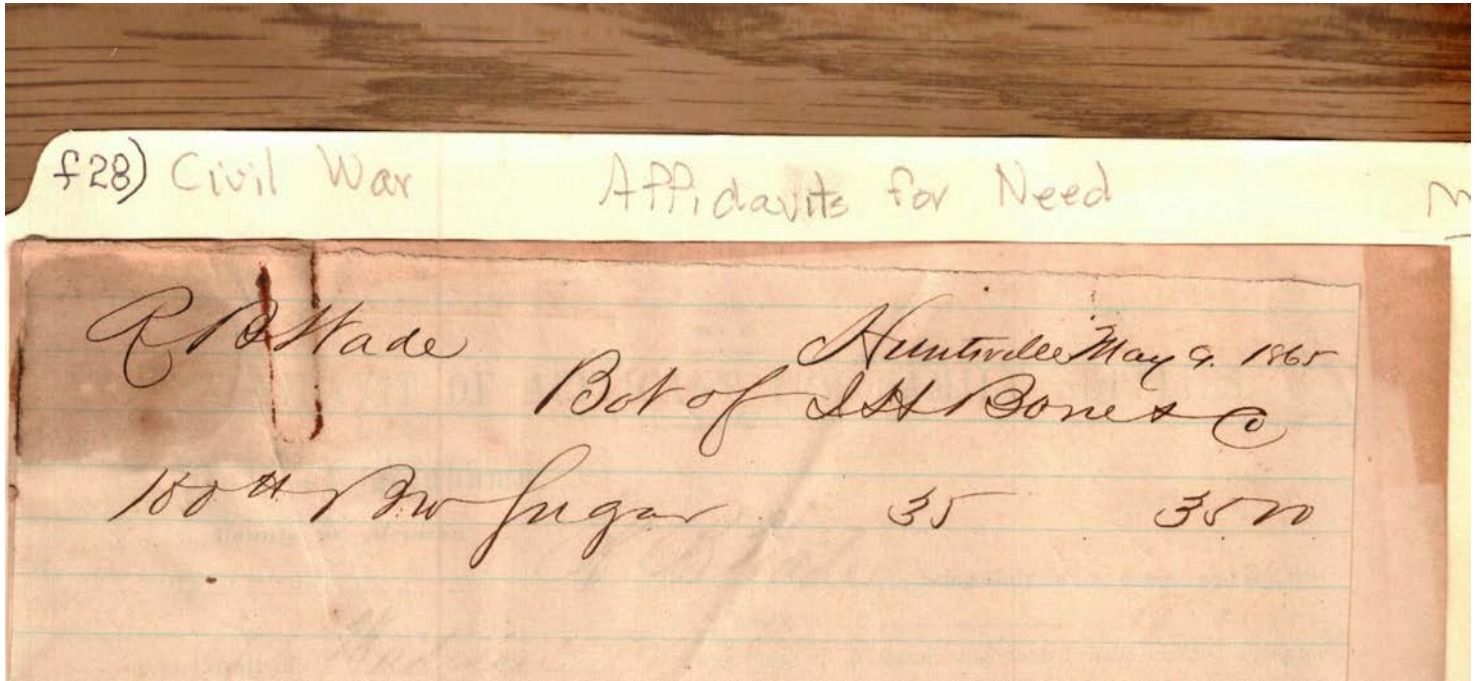 f28) Civil War Affidavits for Need
R B Wade
Huntsville May 9. 1865
Bot of I H Bone & Co
100 # Brw Sugar 35 3500